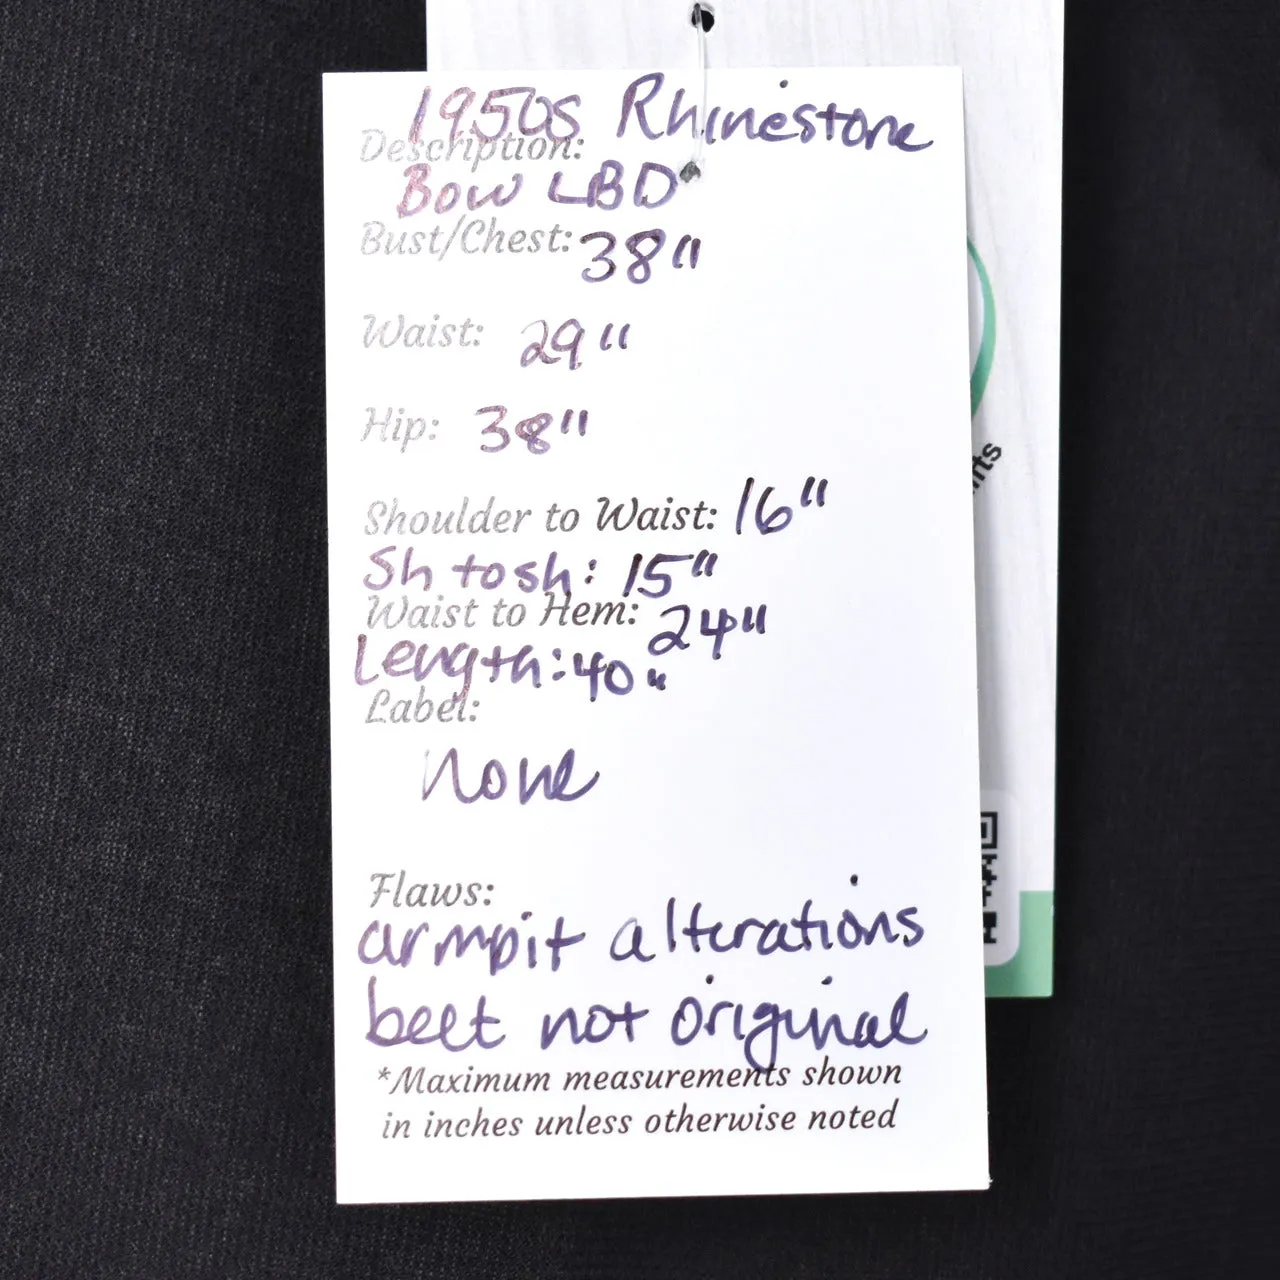 1950s Rhinestone
Description:
Bow LBD
Bust/Chest: 38"
Waist: 29"
Hip: 38"
Shoulder to Waist: 16"
Sh to sh: 15"
Waist to Hem: 24"
Length: 40"
Label:
None
Flaws:
armpit alterations
belt not original
*Maximum measurements shown
in inches unless otherwise noted